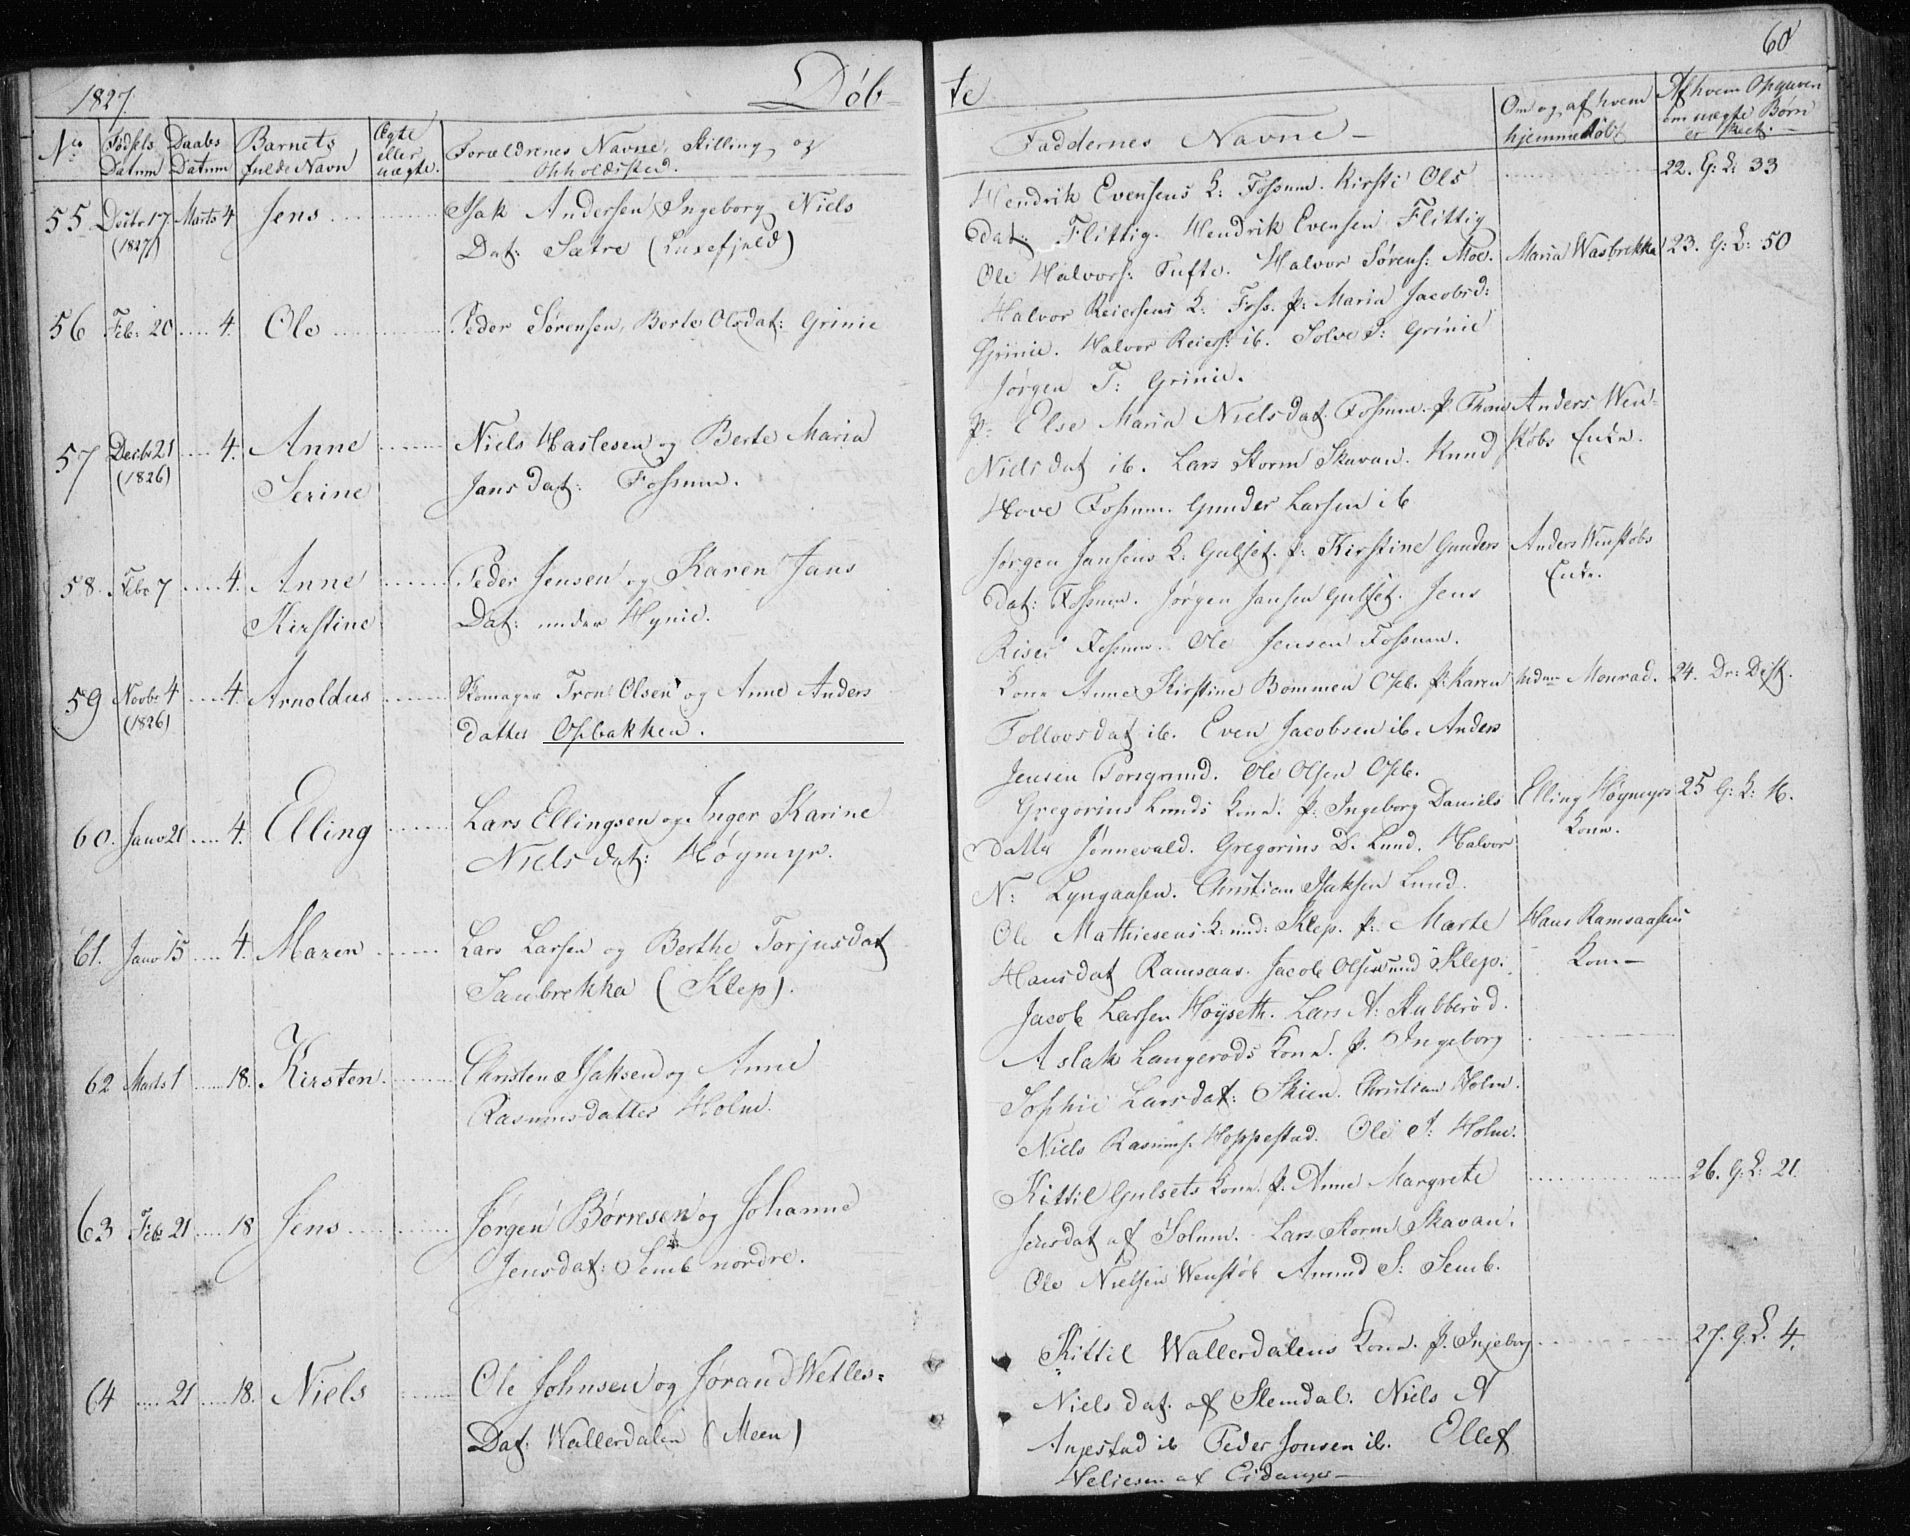 60
1827
Døb- te
No Fødsels Datum Daabs Datum Barnets fulde Navn Ægte eller uægte. Forældrenes Navne, Stilling og Opholdssted. Faddernes Navne - Om og af hvem hjemmedøbt Af hvem Opgaven om uægte Børn er skeet.
55 Decbr 17 (1827) Marts 4 Jens
Isak Andersen, Ingeborg Niels
Dat: Sætre (Luxefjeld)
Hendrik Evensens K: Fossum. Kirsti Ols
dat: Flittig. Hendrik Evensen Flittig
Ole Halvors: Tufte. Halvor Sørens: Moe.
22. G: L: 33
56 Feb: 20 .... 4. Ole
Peder Sørensen, Berte Olsdat: Grinie
Halvor Reiersens K: Foss. p: Maria Jacobsd:
Grinie. Halvor Reiers: ib. Solve P: Grinie
Jørgen T: Grinie.
Maria Wasbrekka 23. G: L: 50
57 Decbr 21 (1826) .... 4. Anne
Serine
Niels Haslesen og Berte Maria
Jansdat: Fossum.
p: Else Maria Nielsdat. Fossum. p. Thone
Nielsdat ib. Lars Storm Skavan. Knud
Hove Fossum. Gunder Larsen ib
Anders Wen-
støbs Enke.
58. Febr 7 .... 4. Anne
Kirstine
Peder Jensen og Karen Jans
Dat: under Hynie.
Jørgen Jansens K: Gulset. p: Kirstine Gunders
dat: Fossum. Jørgen Jansen Gulset. Jens
Riser Fossum. Ole Jensen Fossum.
Anders Wenstøbs
Enke.
59 Novbr 4 (1826) .... 4. Arnoldus
Skomager Tron Olsen og Anne Anders
datter Osebakken.
Kone Anne Kirstine Bommen Oseb. p: Karen
Tollovsdat ib. Even Jacobsen ib. Anders
Jensen Porsgrund. Ole Olsen Oseb.
Mdm Monrad. 24. Dr: Dist.
60. Janv 21 .... 4. Elling
Lars Ellingsen og Inger Karine
Nielsdat: Høymyr.
Gregorius Lunds Kone. p: Ingeborg Daniels
datter Jønnevald. Gregorius D. Lund. Halvor
N: Lyngaasen. Christian Isaksen Lund.
Elling Høymyrs
Kone.
25 G: L: 16.
61. Janv 15 .... 4. Maren
Lars Larsen og Berthe Torjusdat
Saubrekka (Klep).
Ole Mathiesens K: und: Klep. p: Marte
Hansdat Ramsaas. Jacob Olsen und Klep.
Jacob Larsen Høyseth. Lars A: Stubberød.
Hans Ramsaasens
Kone -
62 Marts 1 .... 18. Kirsten.
Christen Isaksen og Anne
Rasmusdatter Holm.
Aslak Langerøds Kone. p. Ingeborg
Sophie Larsdat: Skien. Christian Holm.
Niels Rasmus. Hoppestad. Ole I: Holm.
63 Feb: 21 .... 18 Jens
Jørgen Børresen og Johanne
Jensdat: Semb nordre.
Kittil Gulsets Kone. p. Anne Margrete
Jensdat af Solum. Lars Storm Skavan.
Ole Nielsen Wenstøb Amund S: Semb.
26. G. L: 21.
64 .... 21 .... 18. Niels
Ole Johnsen og Jørand Wetles=
Dat. Wallerdalen (Meen)
Kittil Wallerdalens Kone. p. Ingeborg
Nielsdat. af Slemdal. Niels A
Anjestad ib Peder Jonsen ib. Ellef
Heliesen af Eidanger -
27. G. L. 4.